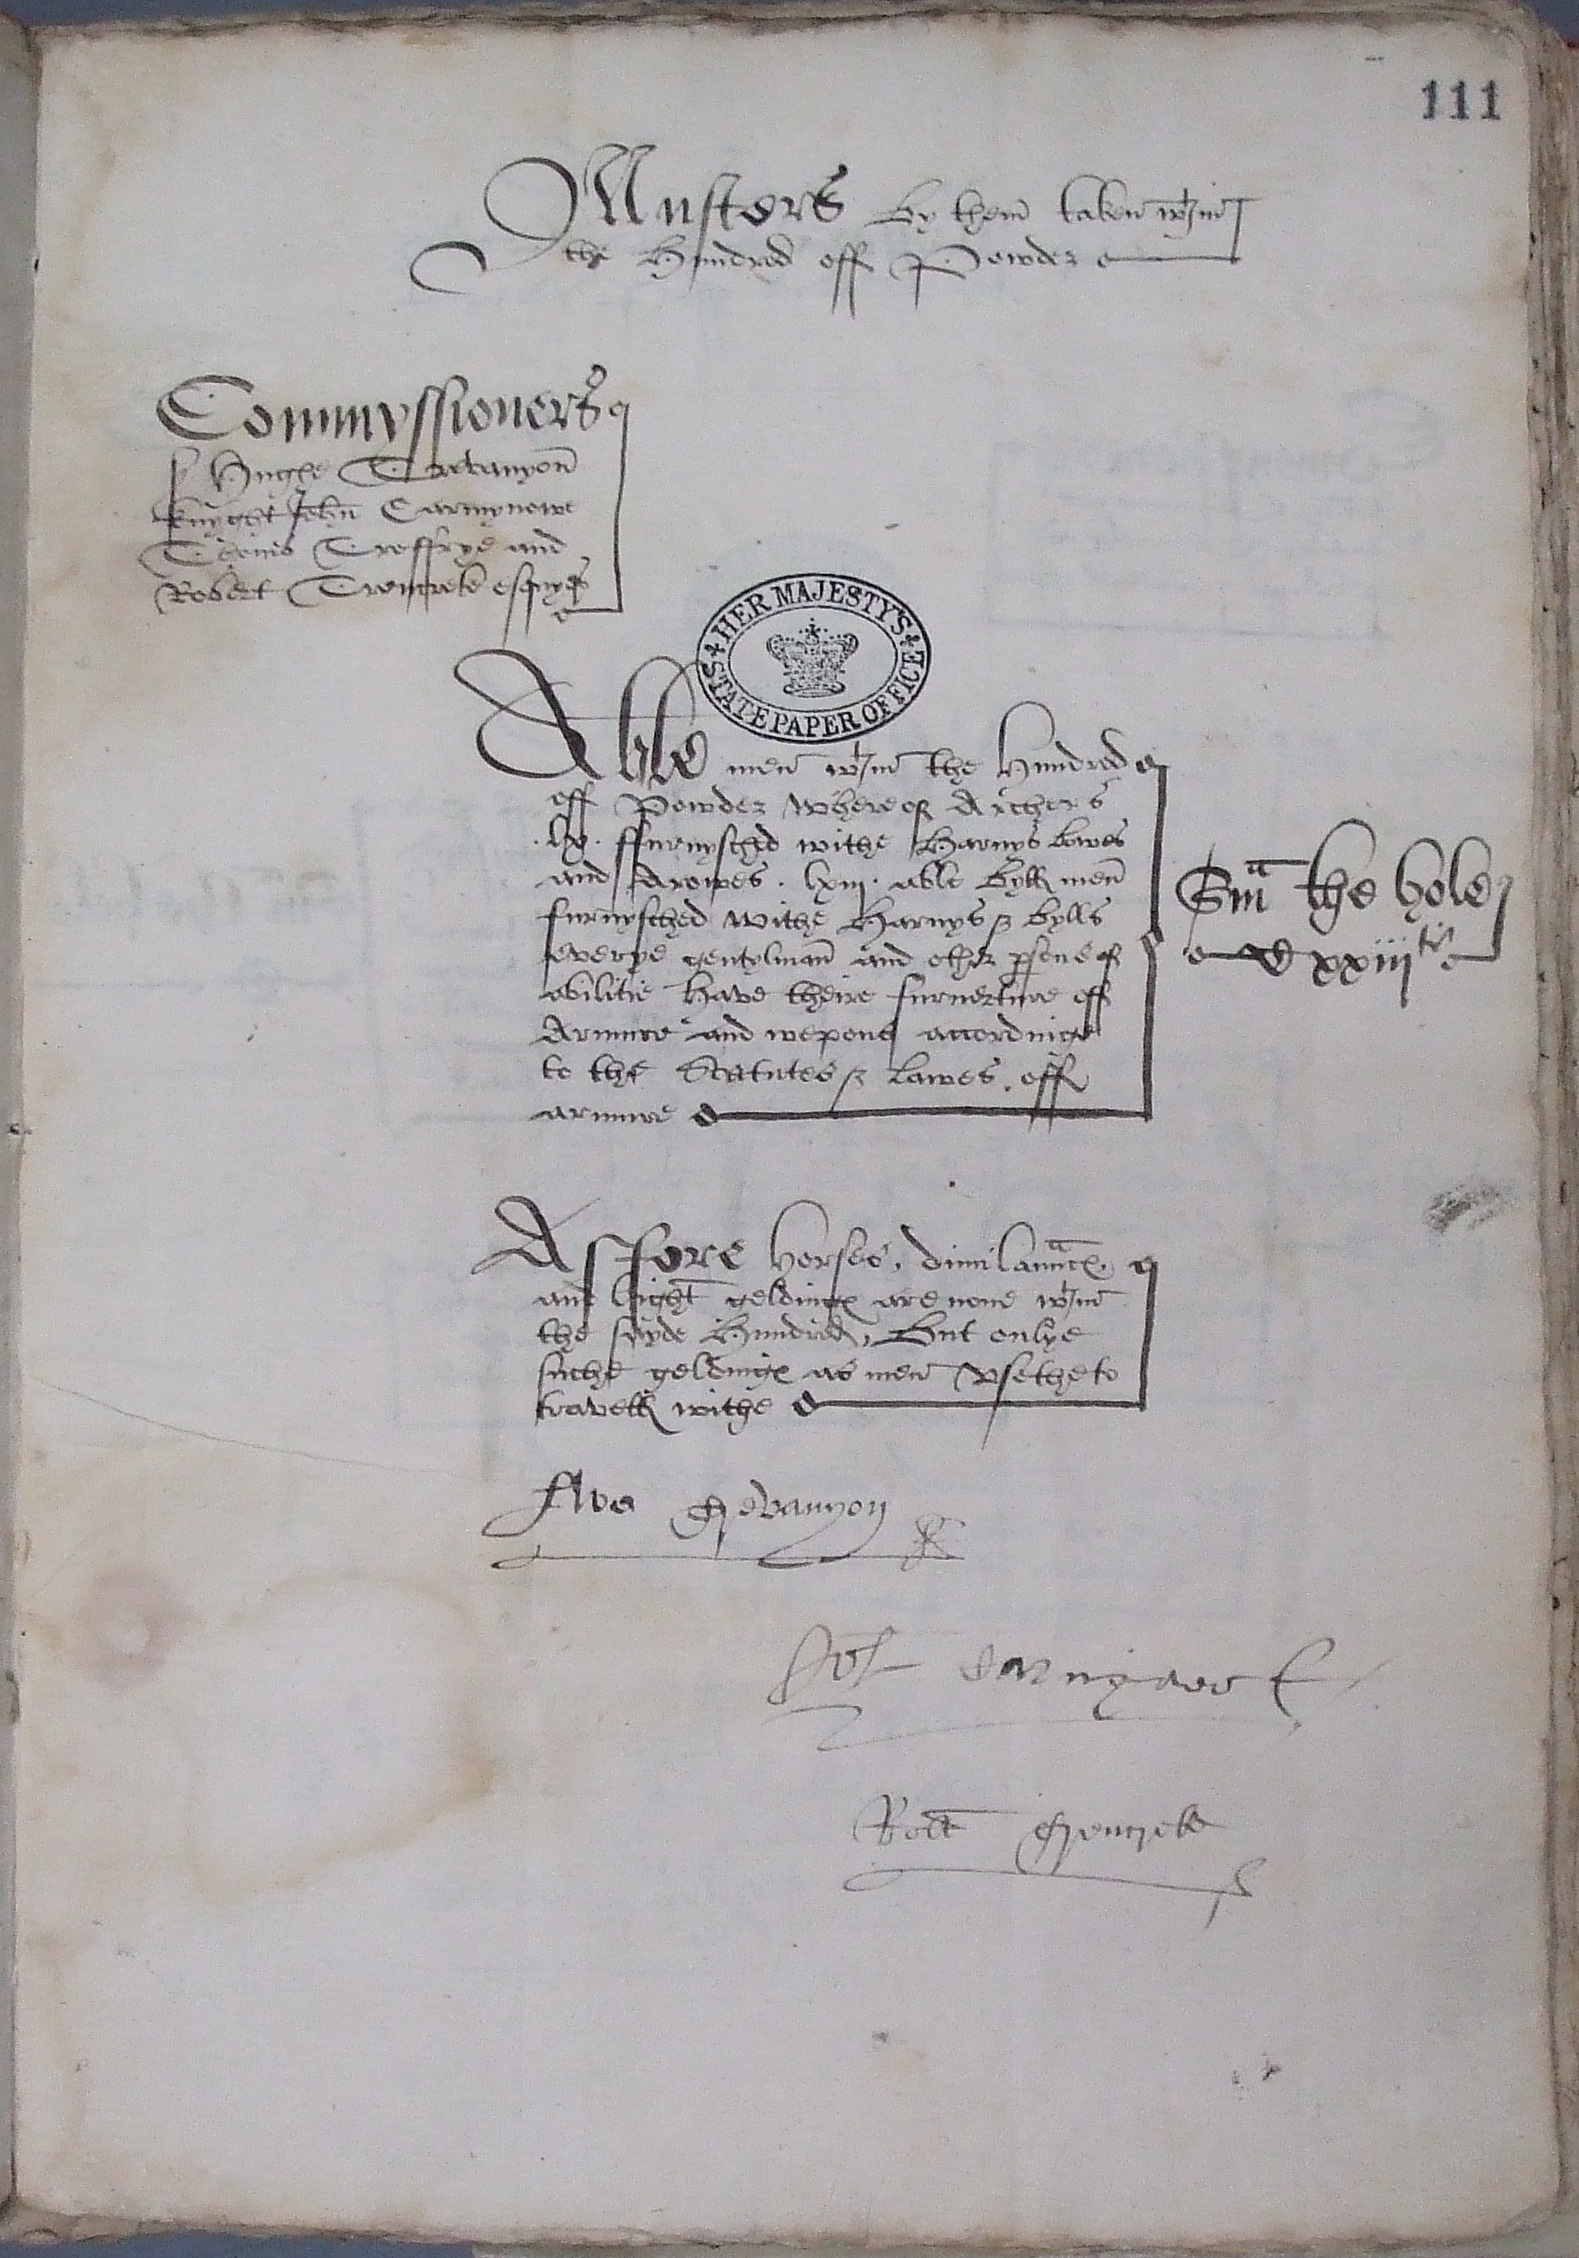 111
Musters by them taken wtin
the Hundred off Powder
Commyssioners
Sr Hughe Trevanyon
knyght John Carmynowe
Thoms Treffrye and
Robert Trencreke esquyers
HER MAJESTY'S
STATE PAPER OFFICE
Able men wtin the Hundred
off Powder whereof Archers
.lx. ffurnysched withe Harnys bowes
and Arowes . lxiij . able byll men
furnysched withe Harnys & bylls
everye gentylman and other psone of
abilitie have theire furneture off
Armure and wepons accordinge
to the Statutes & Lawes . off
armure
Sma the hole
v xxiiij ti
As fore horses , dimilaunces .
and light geldings are none wtin
the sayde Hundred , But onlye
suche geldings as men vsethe to
travell withe
Trevanyon
Carmynowe
Robt Trencreke